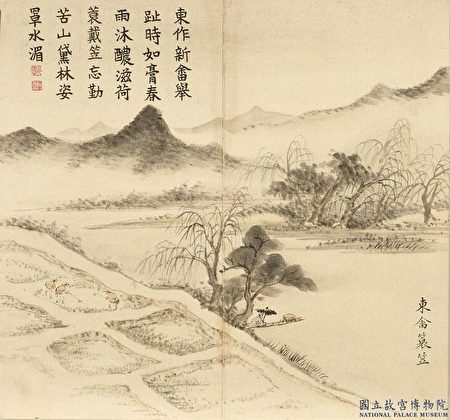 東作新畬舉
趾時如膏春
雨沐醲滋荷
蓑戴笠忘勤
苦山黛林姿
罩水湄
東畬簑笠
國立故宮博物院
NATIONAL PALACE MUSEUM